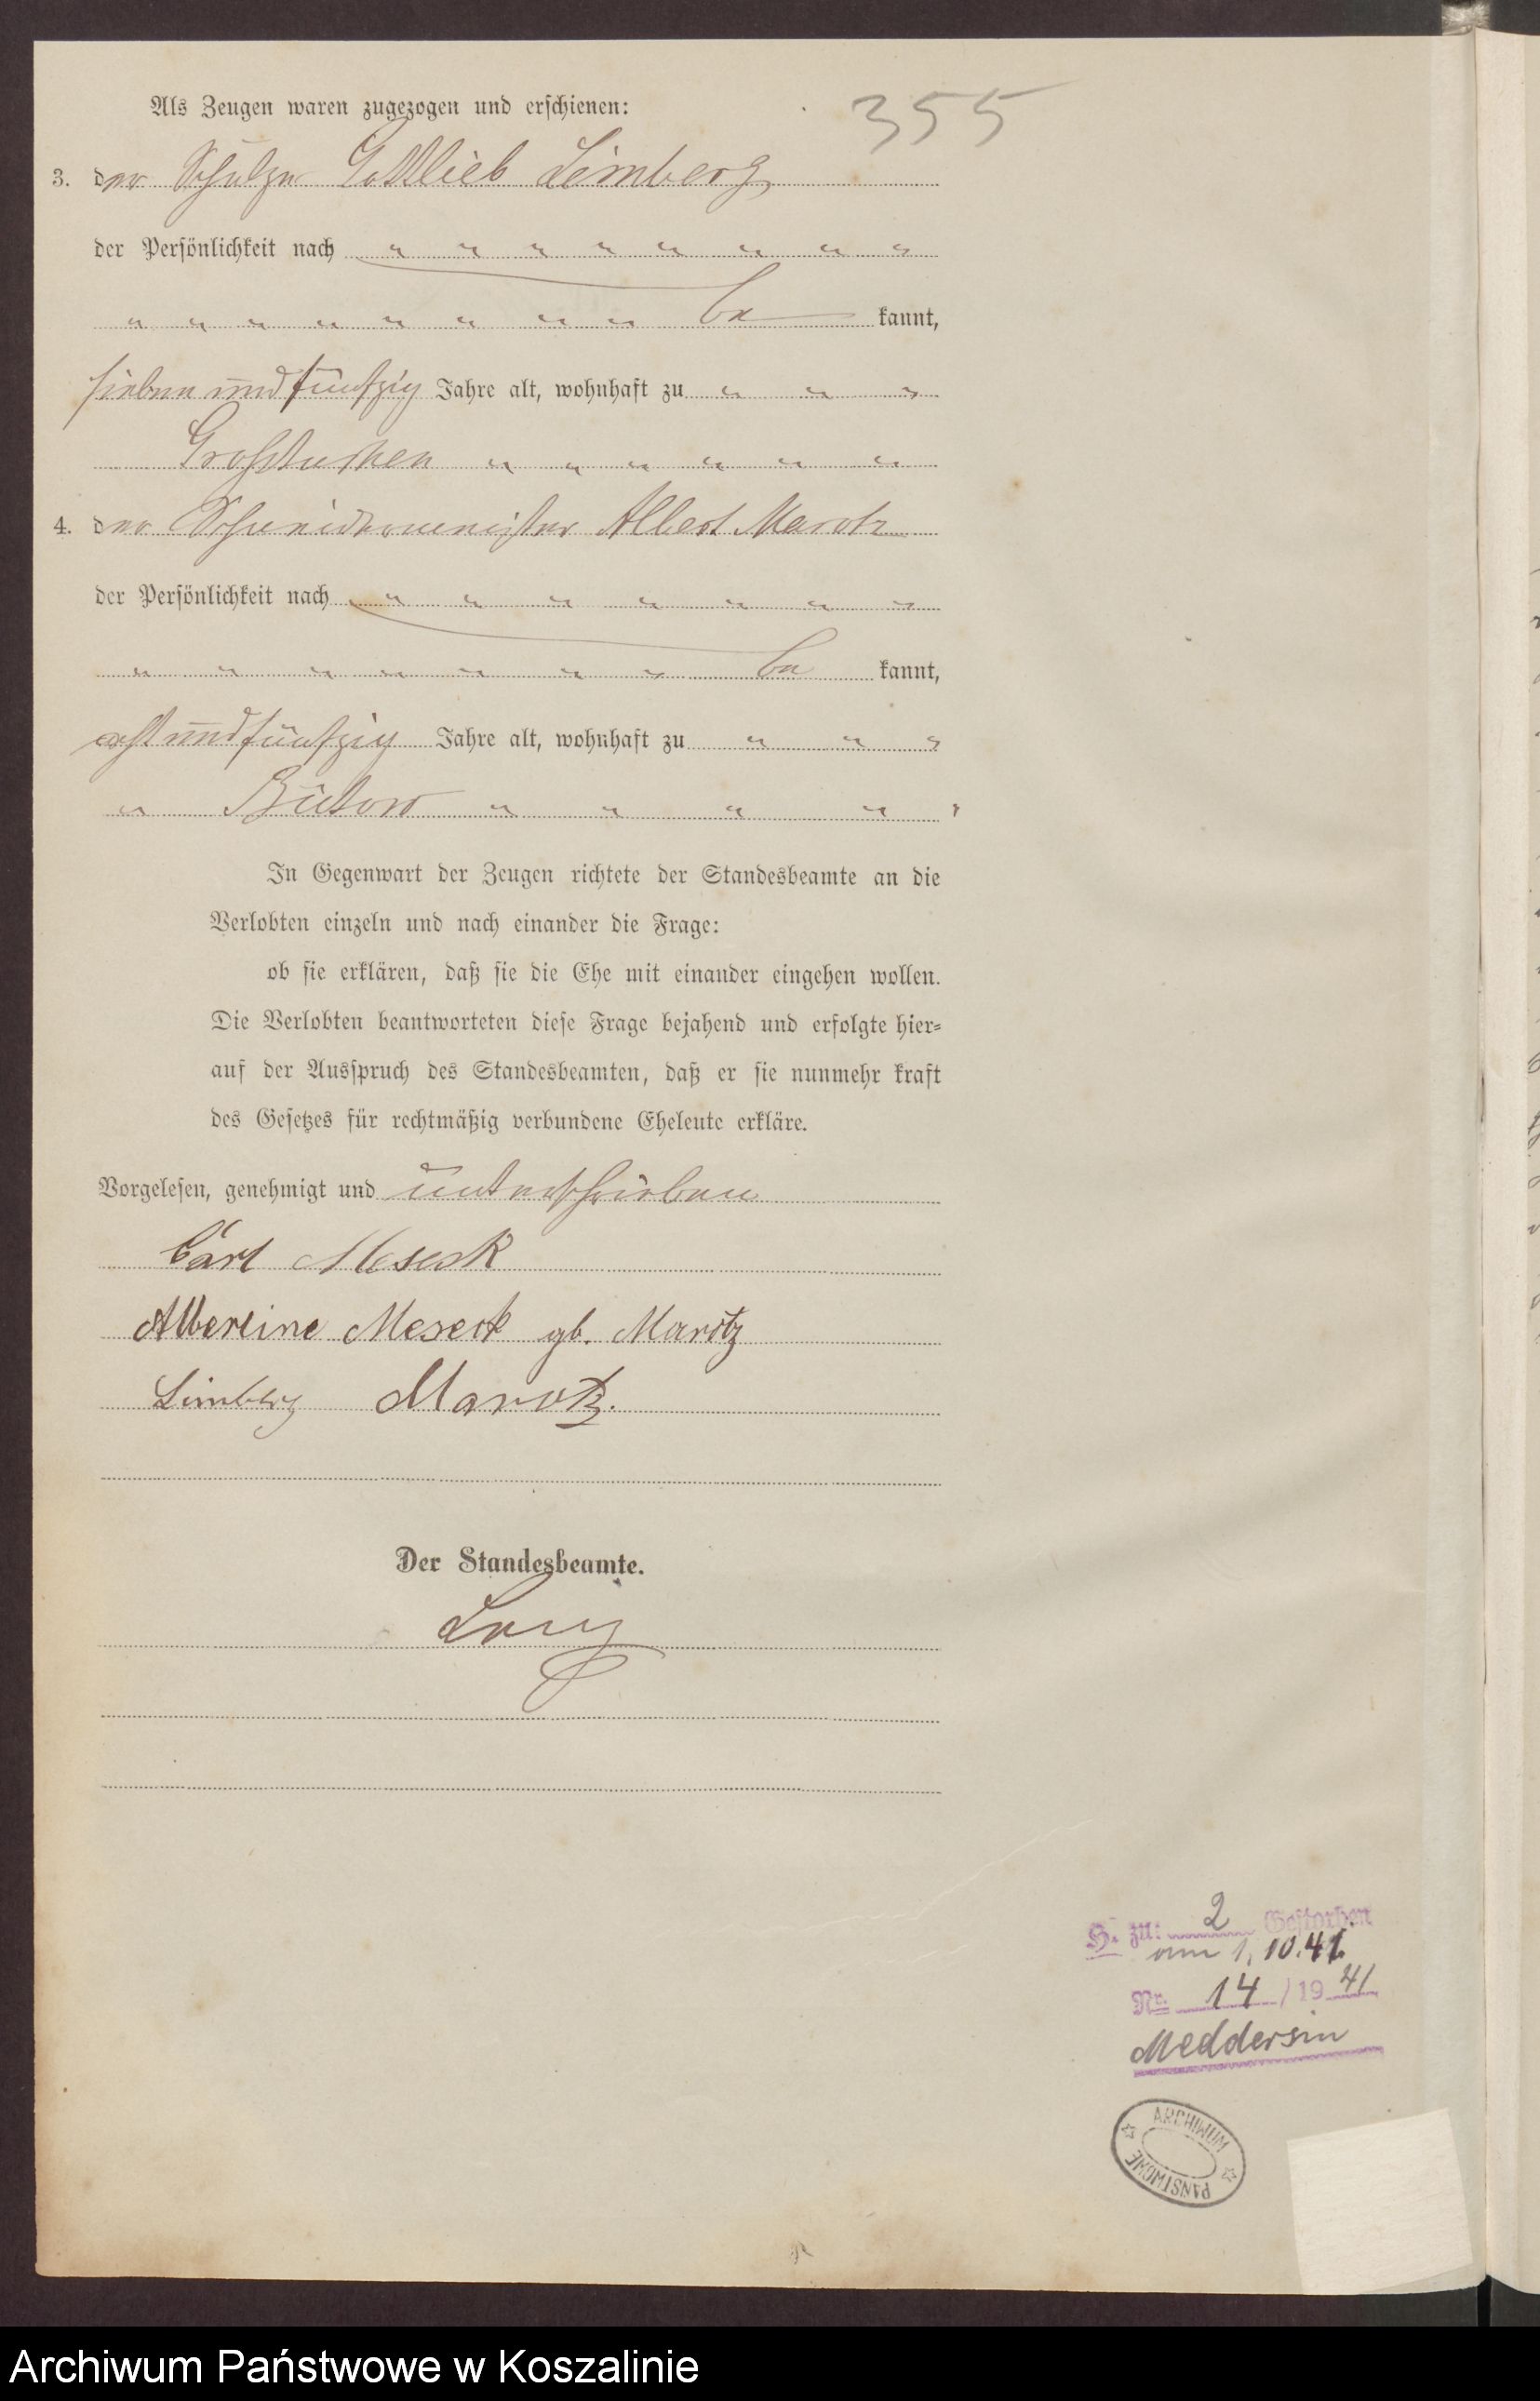 355
Als Zeugen waren zugezogen und erschienen:
3. der Schulze Gottlieb Limberg
der Persönlichkeit nach " " " " " " " "
" " " " " " " " be kannt,
sieben und fünfzig Jahre alt, wohnhaft zu " " "
Großtuchen " " " " " "
4. der Schneidermeister Albert Marotz
der Persönlichkeit nach " " " " " " " "
" " " " " " " be kannt,
acht und fünfzig Jahre alt, wohnhaft zu " " "
" Bütow " " " " "
In Gegenwart der Zeugen richtete der Standesbeamte an die
Verlobten einzeln und nach einander die Frage:
ob sie erklären, daß sie die Ehe mit einander eingehen wollen.
Die Verlobten beantworteten diese Frage bejahend und erfolgte hier-
auf der Ausspruch des Standesbeamten, daß er sie nunmehr kraft
des Gesetzes für rechtmäßig verbundene Eheleute erkläre.
Vorgelesen, genehmigt und unterschrieben
Carl Meseck
Albertine Meseck gb. Marotz
Limberg Marotz.
Der Standesbeamte.
H. zu: 2 Gestorben
am 1.10.41.
Nr. 14 / 19 41
Meddersin
ARCHIWUM
PAŃSTWOWE
Archiwum Państwowe w Koszalinie